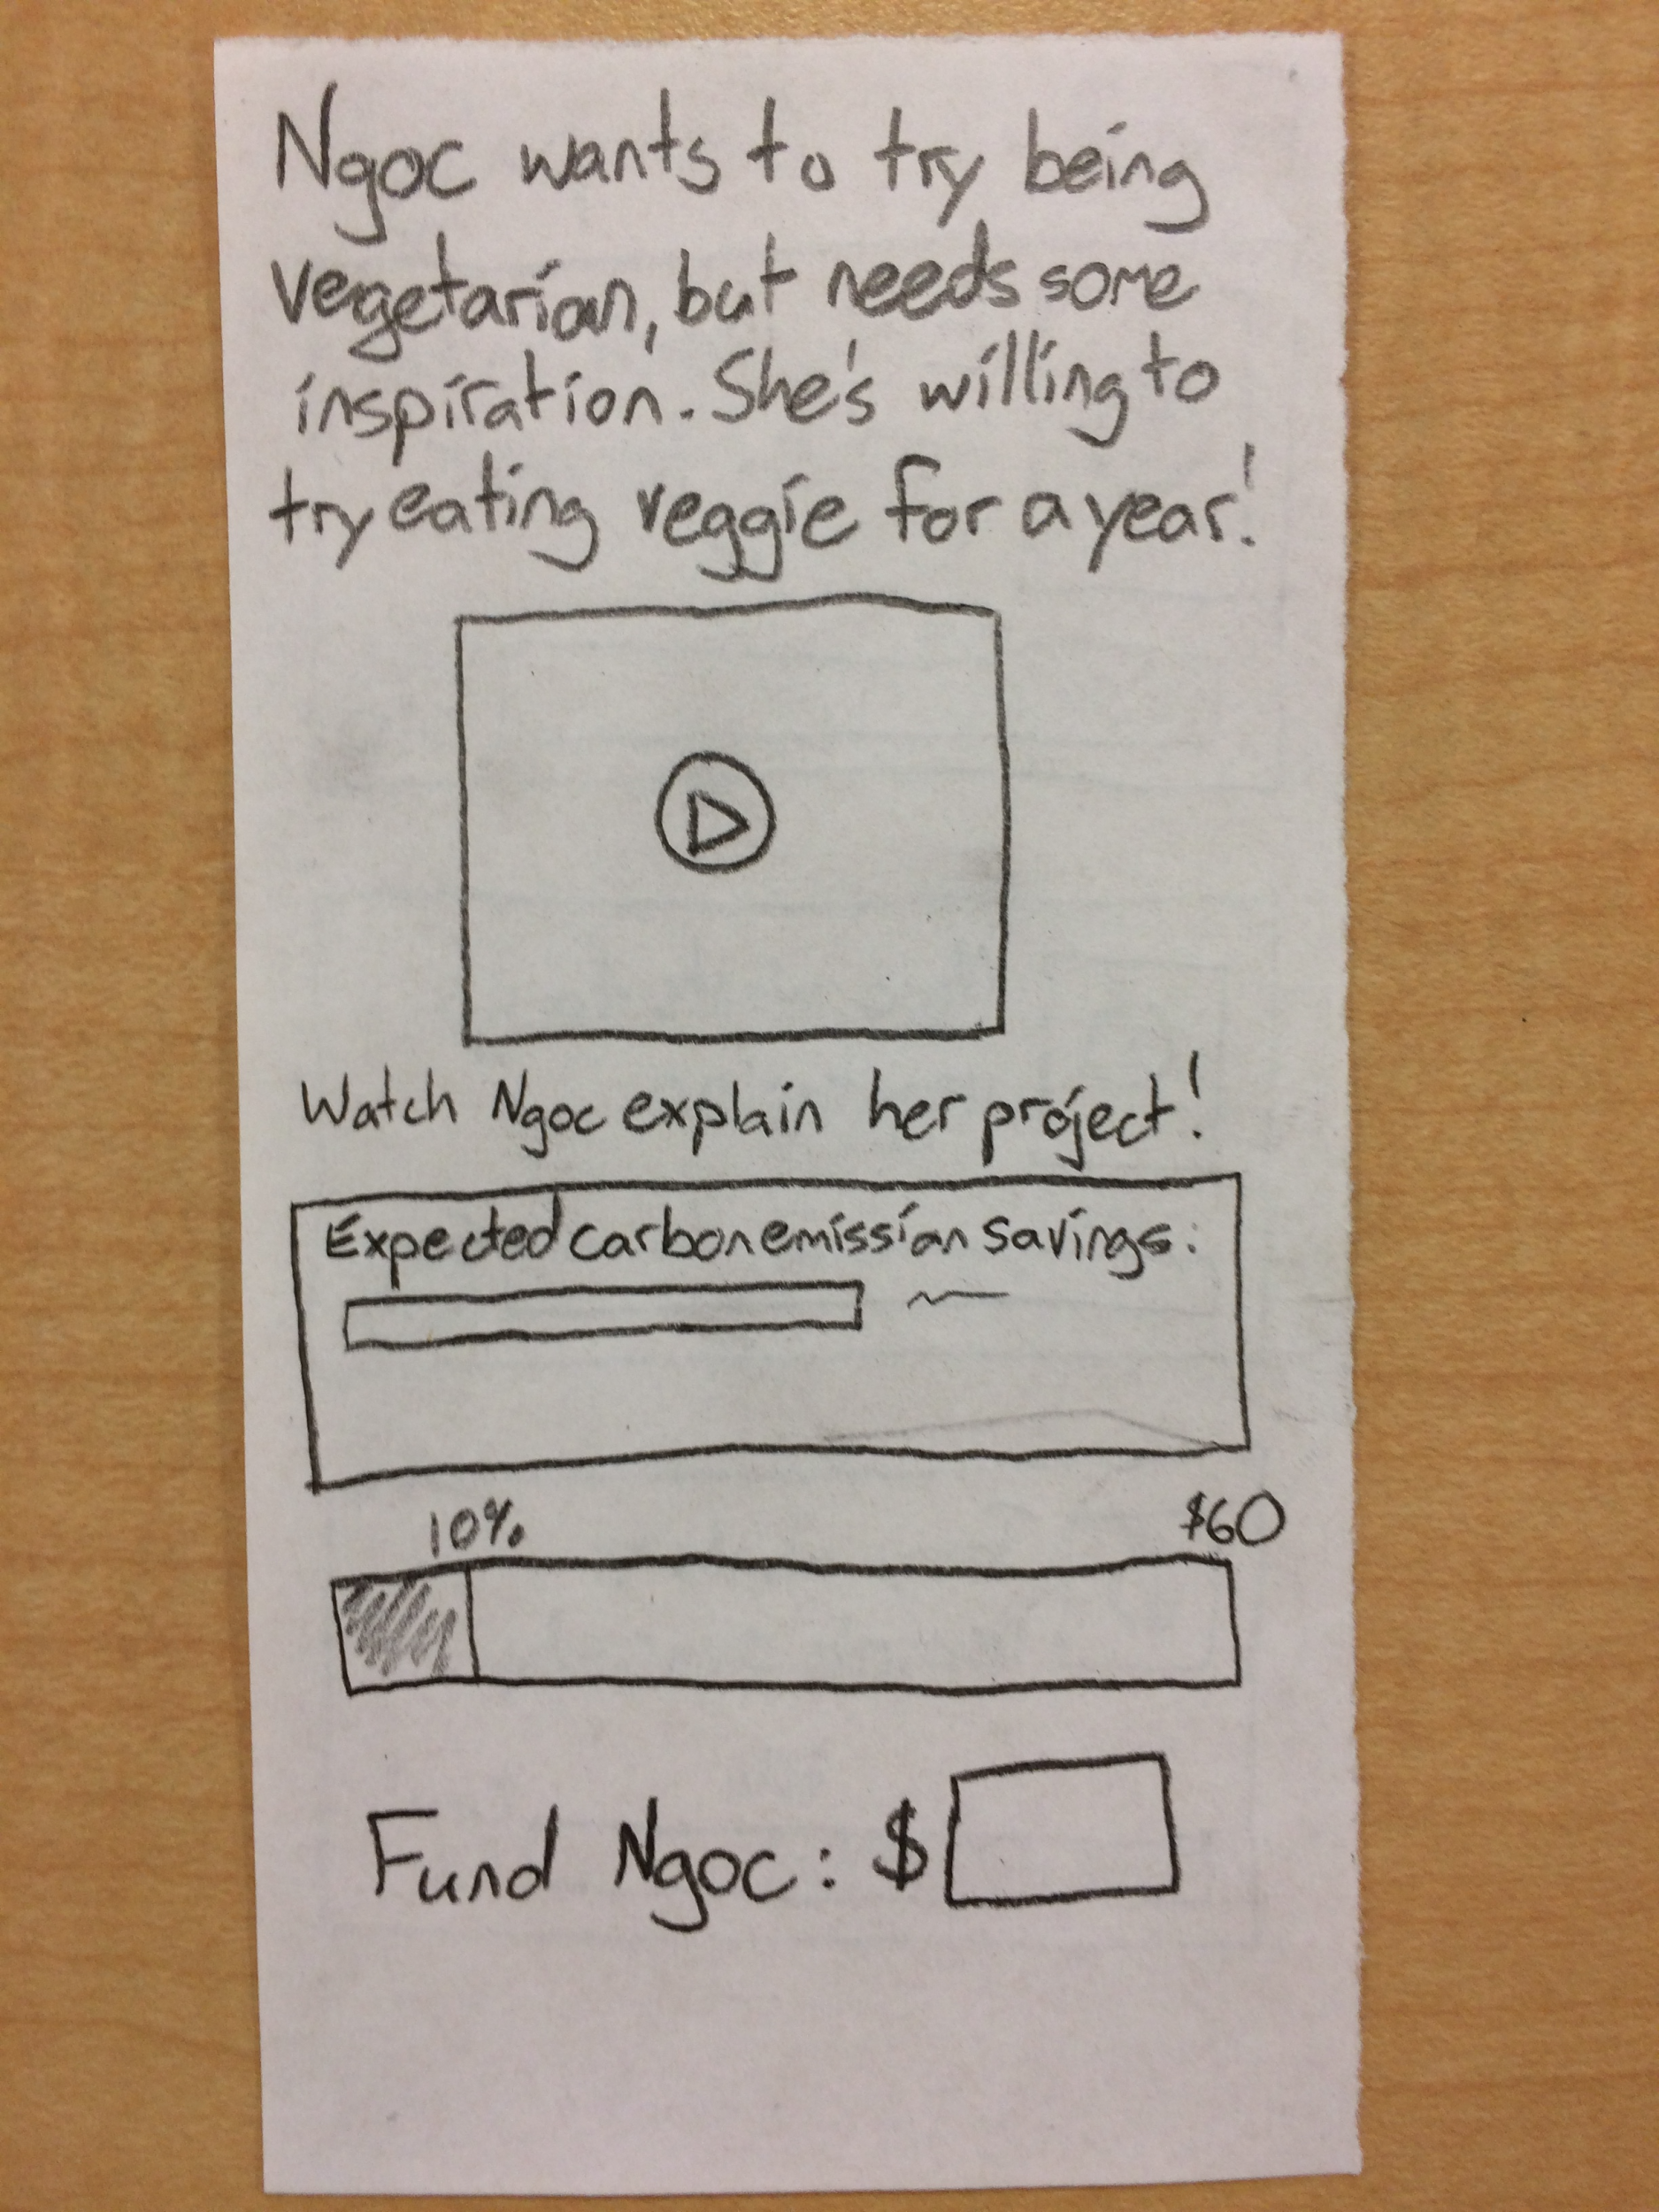 Ngoc wants to try being
vegetarian, but needs some
inspiration. She's willing to
try eating veggie for a year!
Watch Ngoc explain her project!
Expected carbon emission savings:
10% $60
Fund Ngoc: $